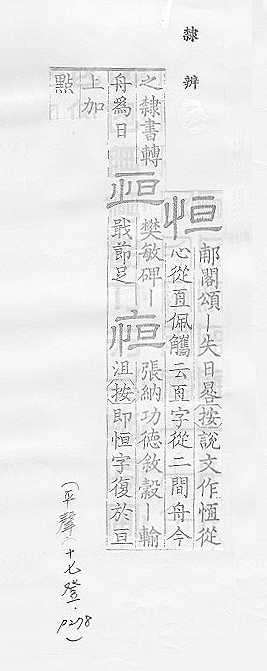 隸辨
恒
郙閣頌丨失日晷按說文作恆從
心從亙佩觿云亙字從二間舟今
之隸書轉
舟爲日
恒
樊敏碑丨
戢節足
恒
張納功德敘穀丨輸
沮按即恒字復於亘
上加
點
(平聲 十七登. p278)